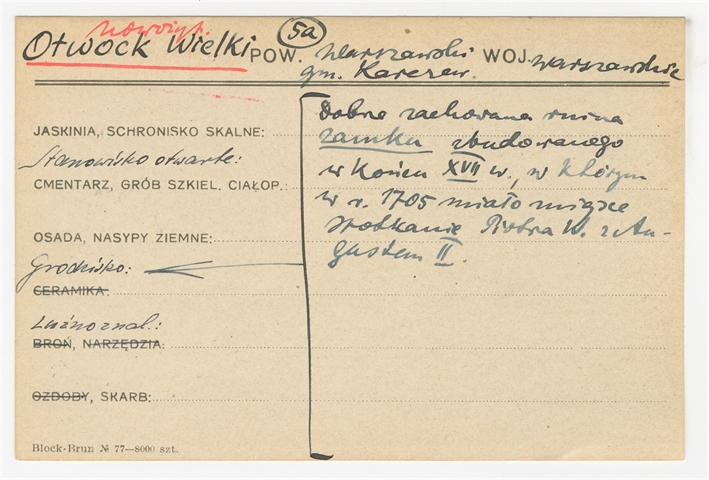 nowożyt.
5a
Otwock Wielki POW. Warszawski WOJ. warszawskie
gm. Karczew.
JASKINIA, SCHRONISKO SKALNE:
Stanowisko otwarte:
CMENTARZ, GRÓB SZKIEL. CIAŁOP.:
OSADA, NASYPY ZIEMNE:
Grodzisko:
CERAMIKA:
Luźno znal.:
BROŃ, NARZĘDZIA:
OZDOBY, SKARB:
Dobrze zachowana ruina
zamku zbudowanego
w końcu XVII w., w którym
w r. 1705 miało miejsce
spotkanie Piotra W. z Au-
gustem II.
Block-Brun № 77—8000 szt.